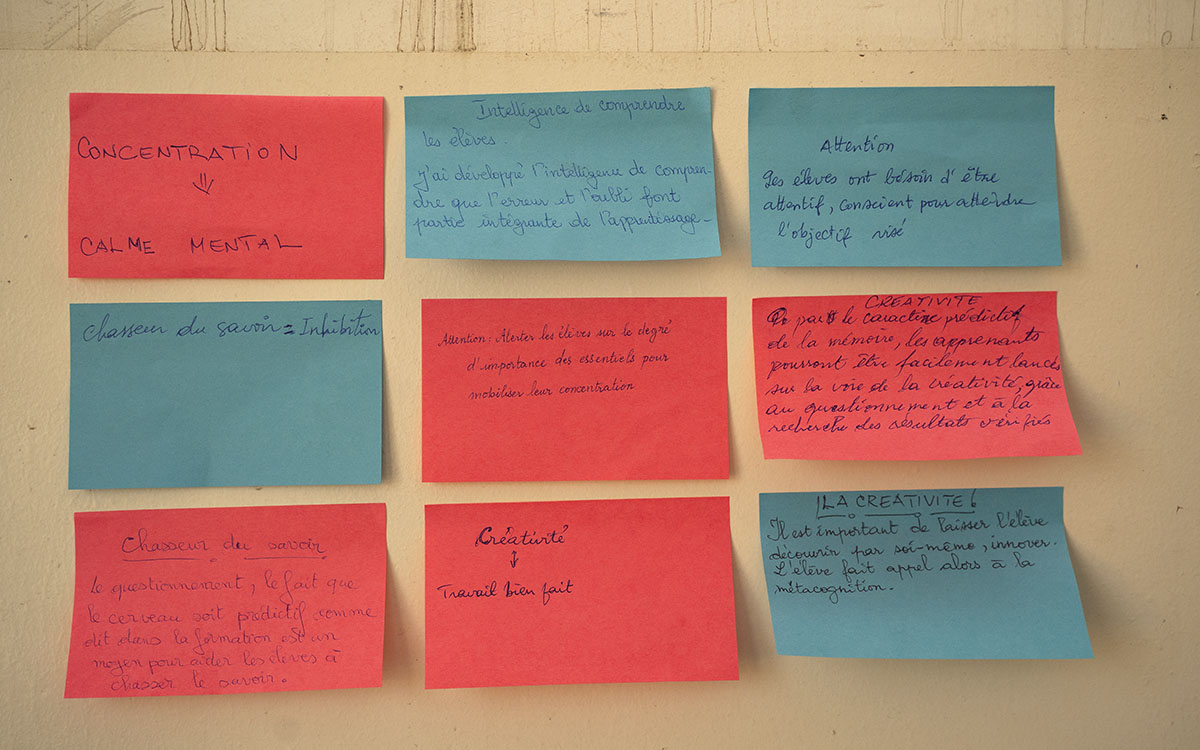 CONCENTRATION
⇓
CALME MENTAL
Intelligence de comprendre
les élèves.
j'ai développé l'intelligence de compren-
dre que l'erreur et l'oubli font
partie intégrante de l'apprentissage-
Attention
Les élèves ont besoin d'être
attentif, conscient pour atteindre
l'objectif visé
Chasseur du savoir = Inhibition
Attention: Alerter les élèves sur le degré
d'importance des essentiels pour
mobiliser leur concentration
CREATIVITE
le caractère prédictif
de la mémoire, les apprenants
pourront être facilement lancés
sur la voie de la créativité, grâce
au questionnement et à la
recherche des résultats vérifiés
Chasseur du savoir
Le questionnement, le fait que
le cerveau soit prédictif comme
dit dans la formation est un
moyen pour aider les élèves à
chasser le savoir.
Créativité
↓
Travail bien fait
LA CREATIVITE !
Il est important de laisser l'élève
découvrir par soi-même, innover.
L'élève fait appel alors à la
métacognition.